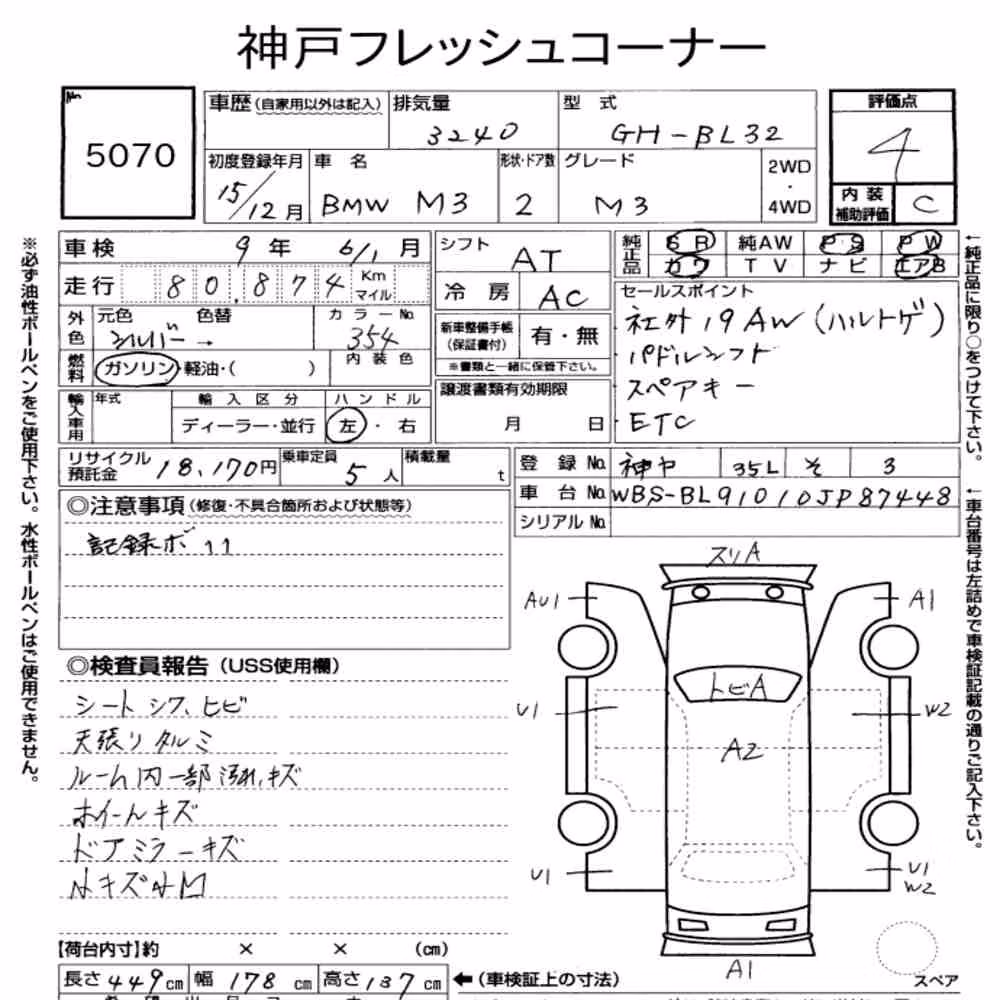 神戸フレッシュコーナー
No.
5070
車歴（自家用以外は記入）
排気量
3240
型 式
GH-BL32
評価点
4
内装補助評価
C
初度登録年月
15/12月
車 名
BMW M3
形状・ドア数
2
グレード
M3
2WD
・
4WD
車検
9年 6/1月
走行
80.874
Km
マイル
外色
元色
色替
シルバー→
カラーNo.
354
燃料
ガソリン・軽油・（　　）
内装色
輸入車用
年式
輸入区分
ディーラー・並行
ハンドル
左・右
シフト
AT
冷房
AC
新車整備手帳（保証書付）
有・無
※書類と一緒に保管下さい。
譲渡書類有効期限
月　日
純正品
SR 純AW PS PW
カワ TV ナビ エアB
セールスポイント
社外19AW（ハルトゲ）
パドルシフト
スペアキー
ETC
リサイクル預託金
18,170円
乗車定員
5人
積載量
t
登録No.
神戸 35L そ 3
車台No.
WBS-BL91010JP87448
シリアルNo.
◎注意事項（修復・不具合箇所および状態等）
記録ボ11
◎検査員報告（USS使用欄）
シートシワ、ヒビ
天張リタルミ
ルーム内一部汚れ、キズ
ホイールキズ
ドアミラーキズ
小キズ小凹
スリA
AU1
A1
U1
トビA
W2
A2
U1
U1
W2
A1
スペア
【荷台内寸】約　×　×　（cm）
長さ449cm 幅178cm 高さ137cm
←（車検証上の寸法）
※必ず油性ボールペンをご使用下さい。水性ボールペンはご使用できません。
←純正品に限り○をつけて下さい。
←車台番号は左詰めで車検証記載の通りご記入下さい。